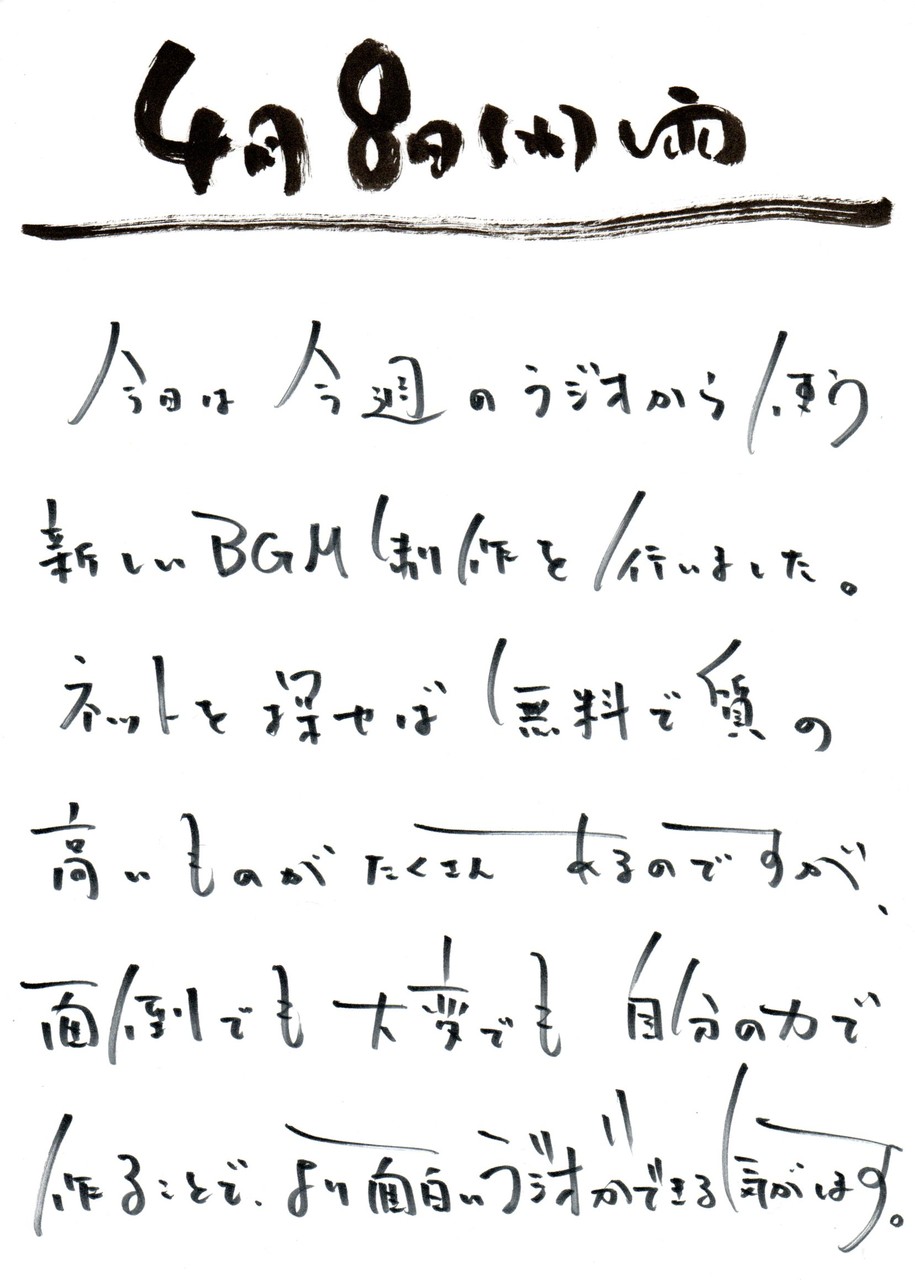 4月8日(水) 雨
今日は今週のラジオから使う
新しいBGM制作を行いました。
ネットを探せば無料で質の
高いものがたくさんあるのですが、
面倒でも大変でも自分の力で
作ることで、より面白いラジオができる気がします。